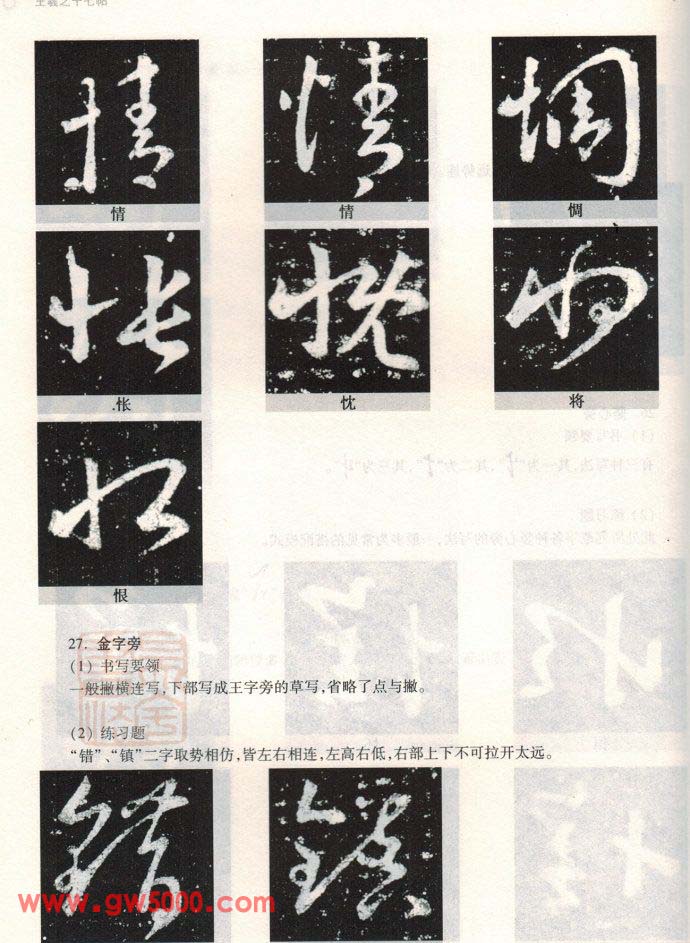 王羲之十七帖
情 情 惆
怅 忱 将
恨
27. 金字旁
(1) 书写要领
一般撇横连写,下部写成王字旁的草写,省略了点与撇。
(2) 练习题
“错”、“镇”二字取势相仿,皆左右相连,左高右低,右部上下不可拉开太远。
www.gw5000.com